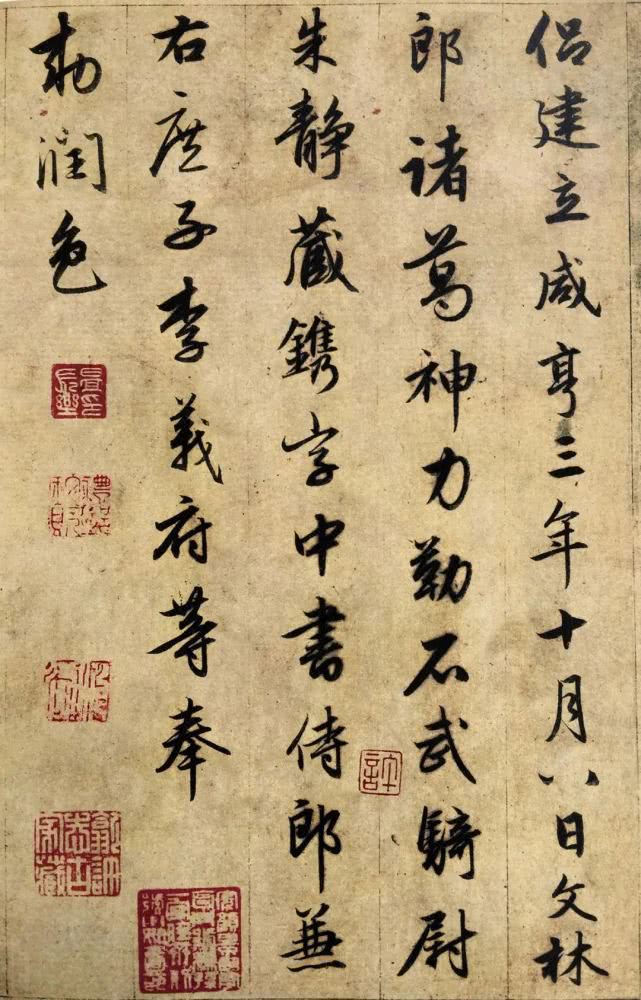 侣建立咸亨三年十月八日文林
郎诸葛神力勒石武骑尉
朱静藏鐫字中書侍郎蒹
右庶子李義府等奉
勅潤色